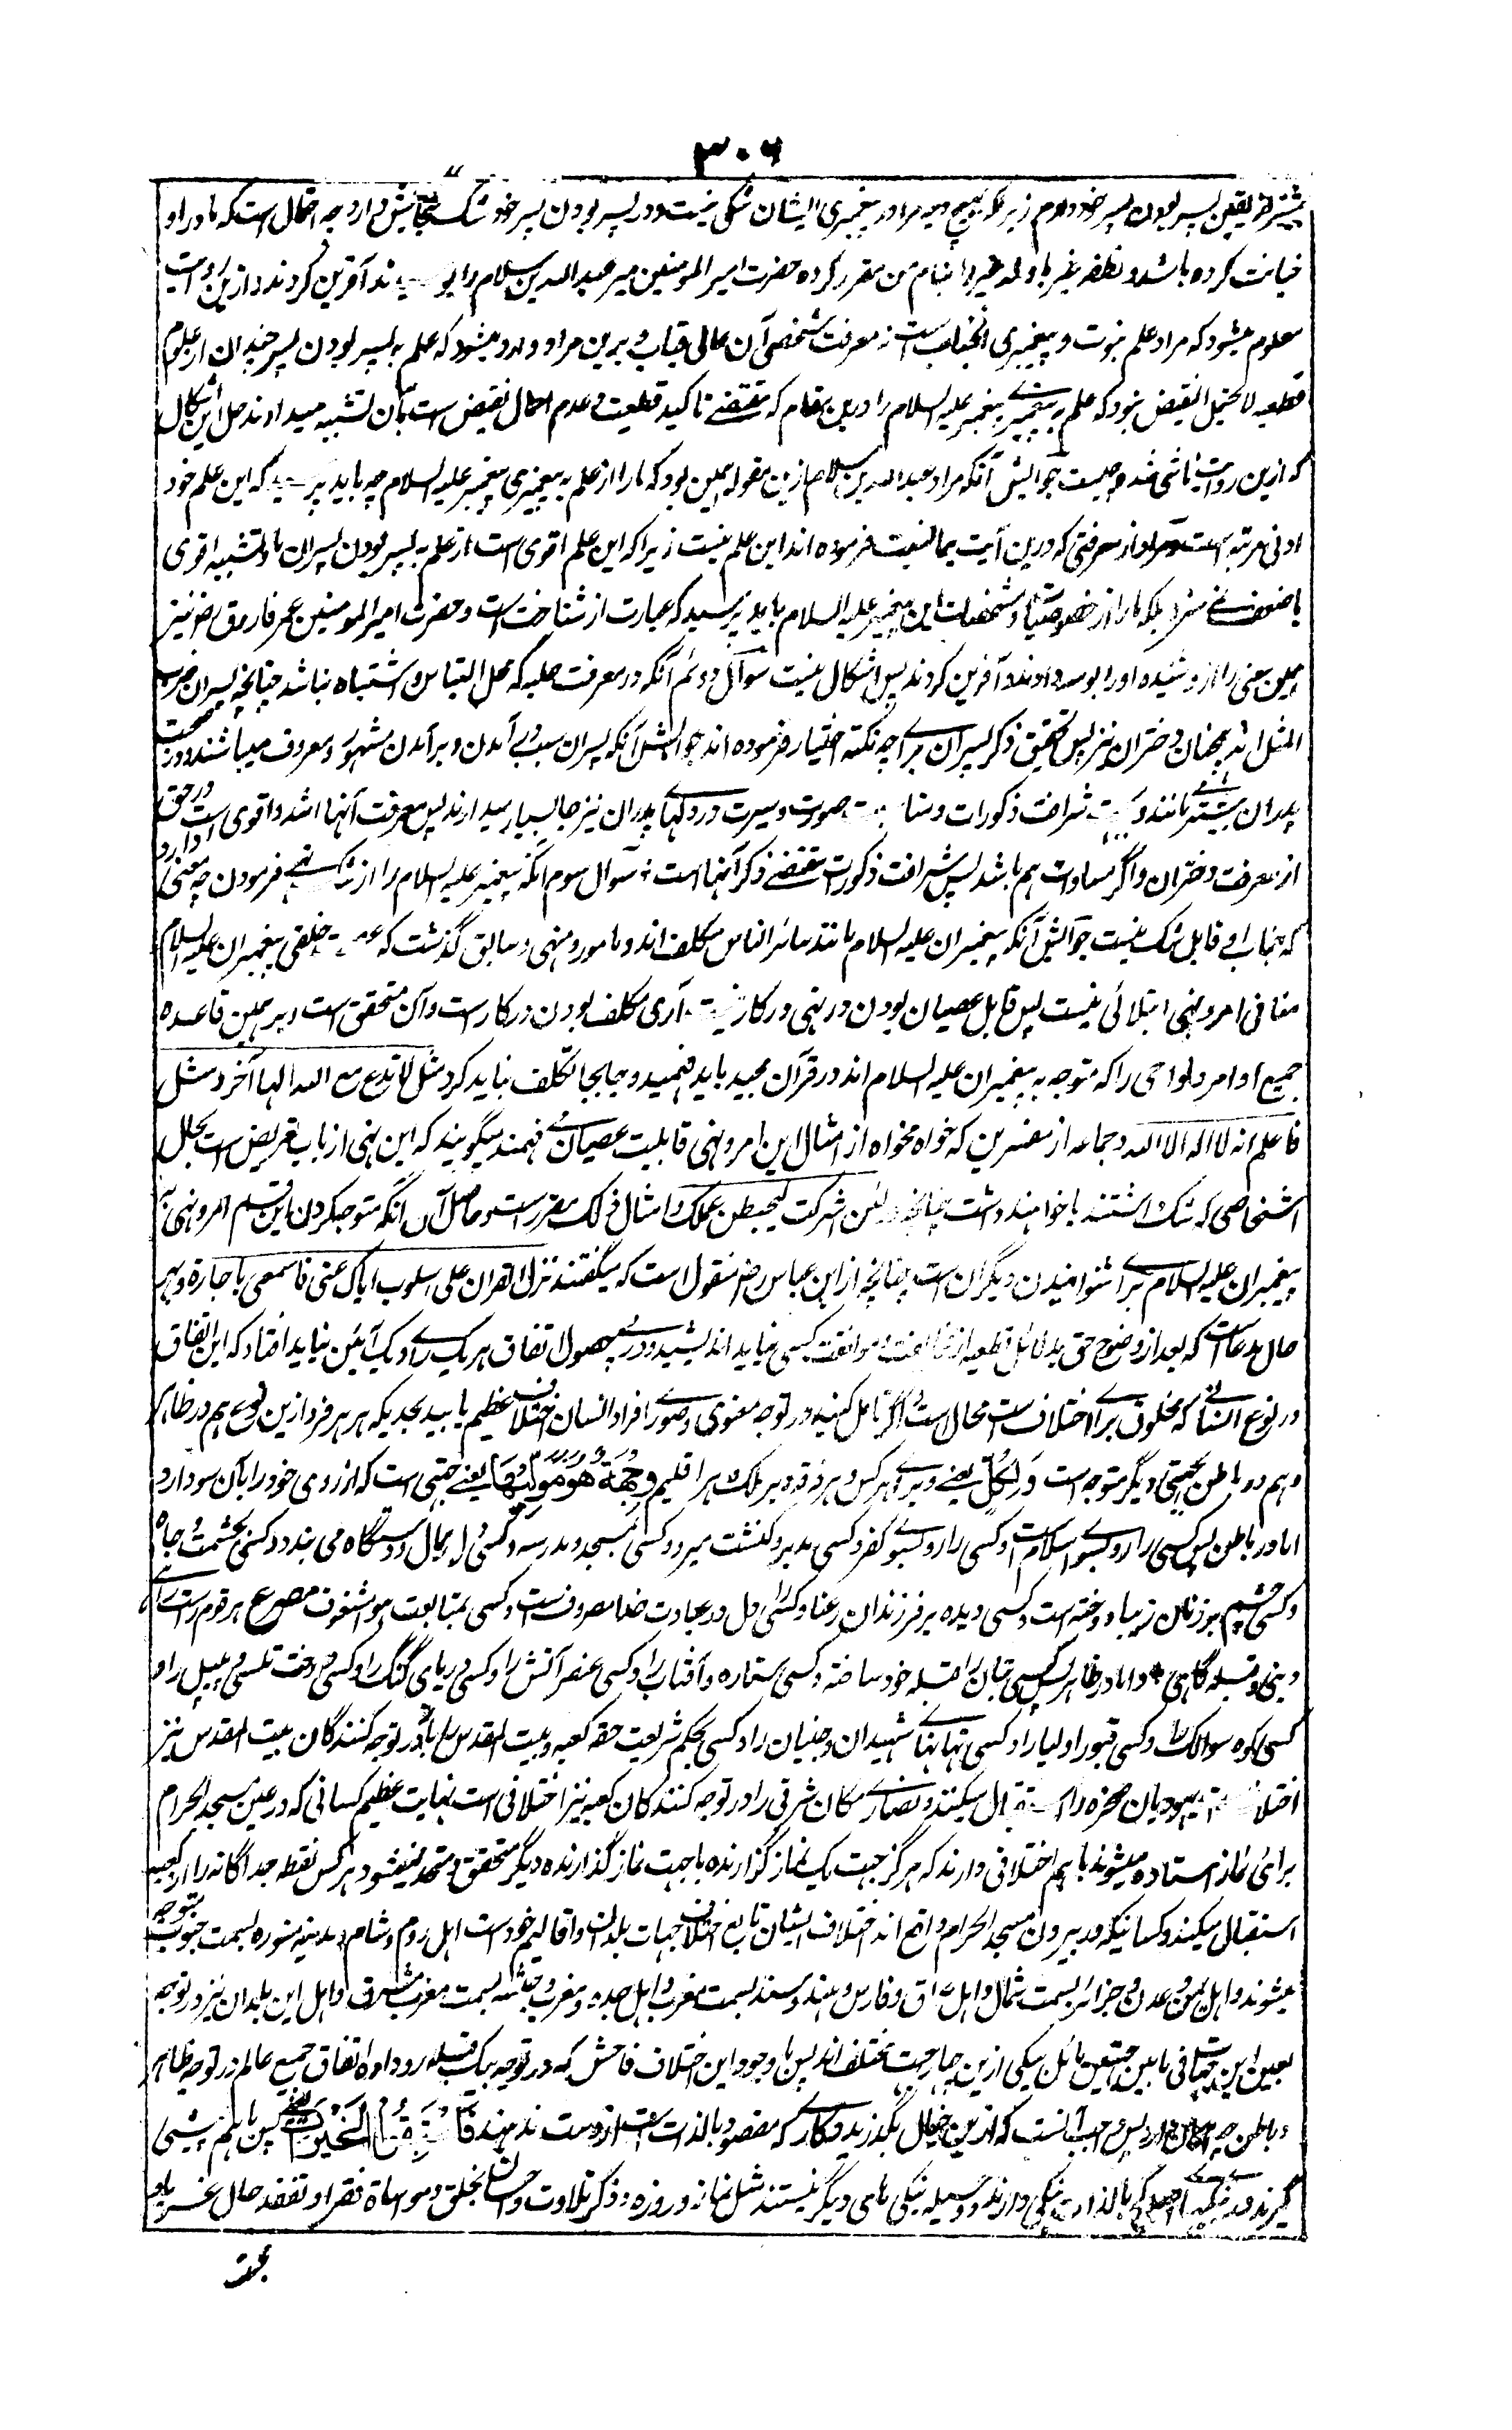 ۳۰۶
بیشتر از یقین پسر بودن پسر خود دارم زیرا که بهیچ وجه مرا در پیغمبری ایشان شکی نیست و در پسر بودن پسر خود شک گنجایش دارد چه احتمال است که مادر او
خیانت کرده باشد و نطفه غیر با ولد غیر را بنام من مقرر کرده حضرت امیر المومنین عمر عبد الله بن سلام را بوسیدند و آفرین کردند و ازین روایت
معلوم میشود که مراد علم نبوت و پیغمبری آنجناب است نه معرفت شخصی آن عالی قباب و برین مراد وارد میشود که علم به پسر بودن پسر چندان از علوم
قطعیه لا یحتمل النقیض نبود که علم به پیغمبری پیغمبر علیه السلام را درین مقام که مقتضی تاکید قطعیت و عدم احتمال نقیض است بآن تشبیه میدادند حل این اشکال
که ازین روایت ناشی شد چیست جوابش آنکه مراد عبد الله بن سلام ازین مقوله همین بود که ما را از علم به پیغمبری پیغمبر علیه السلام چه باید پرسید که این علم خود
ادنی مرتبه است و مراد از معرفتی که درین آیت بما نسبت فرموده اند این علم نیست زیرا که این علم اقوی است از علم به پسر بودن پسران ما و تشبیه اقوی
با ضعف نمی سزد بلکه ما را از خصوصیات و مشخصات این پیغمبر علیه السلام باید پرسید که عبارت از شناخت است و حضرت امیر المومنین عمر فاروق رض نیز
همین معنی را ازو شنیده او را بوسه دادند و آفرین کردند پس اشکال نیست سوال دوم آنکه در معرفت جلیه که محل التباس و اشتباه نباشد چنانچه پسران ضرب
المثل اند همچنان دختران نیز پس تحقیق ذکر پسران برای چه نکته اختیار فرموده اند جوابش آنکه پسران سبب برآمدن و برآمدن مشهور و معروف میباشند و در صحبت
پدران بیشتر می مانند و شرافت ذکورات و صورت و سیرت در دلهای پدران نیز جا بسیار میدارند پس معرفت آنها اشد و اقوی است در حق
از معرفت دختران و اگر مساوات هم باشد پس شرافت ذکورت مقتضی ذکر آنها است سوال سوم آنکه پیغمبر علیه السلام را از شک نهی فرمودن چه معنی دارد
که جناب وی قابل شک نیست جوابش آنکه پیغمبران علیه السلام مانند سائر الناس مکلف اند و مامور و منهی و سابق گذشت که عصمت خلقی پیغمبران علیه السلام
منافی امر و نهی ابتلائی نیست پس قابل عصیان بودن در نهی در کار نیست آری مکلف بودن در کار است و آن متحقق است و بر همین قاعده
جمیع اوامر و نواهی را که متوجه به پیغمبران علیه السلام اند در قرآن مجید باید فهمید و جابجا تکلف نباید کرد مثل لا تدع مع الله الها آخر و مثل
فاعلم انه لا اله الا الله و جماعه از مفسرین که خواه مخواه از امثال این امر و نهی قابلیت عصیان می فهمند میگویند که این نهی از باب تعریض است بحال
اشخاصی که شک داشتند یا خواهند داشت چنانچه در لئن اشرکت لیحبطن عملک و امثال ذلک مقرر است و حاصل آن آنکه متوجه کردن این قسم امر و نهی به
پیغمبران علیه السلام برای شنوانیدن دیگران است چنانچه از ابن عباس رض منقول است که میگفتند نزل القرآن علی اسلوب ایاک عنی فاسمعی یا جارة و بهر
حال مدعا آنست که بعد از وضوح حق بدلائل قطعیه از مخالفت و موافقت کسی نباید اندیشید و در پی حصول اتفاق هر یک را و یک آئین نباید افتاد که این اتفاق
در نوع انسانی که مخلوق برای اختلاف است محال است و اگر تامل کنید در توجه معنوی و صوری افراد انسان اختلاف عظیم یابید بحدیکه هر هر فرد ازین نوع هم در ظاهر
و هم در باطن بجهتی دیگر متوجه است وَلِكُلٍّ یعنی و برای هر کس و هر فرقه و هر ملک هر اقلیم وِجْهَةٌ هُوَ مُوَلِّيهَا یعنی جهتی است که از روی خود را بآن سو دارد
اما در باطن پس کسی را روبسوی اسلام است و کسی را رو بسوی کفر و کسی بدیر و کنشت میرود و کسی بمسجد و مدرسه و کسی دل بمال و دستگاه می بندد و کسی بحشمت و جاه
و کسی چشم بر زنان زیبا دوخته است و کسی دیده بر فرزندان رعنا و کسی را دل در عبادت خدا مصروف است و کسی بمتابعت هوا مشغوف مصرع هر قوم راست راهی
دینی و قبله گاهی * و اما در ظاهر پس کسی بتان را قبله خود ساخته و کسی ستاره و آفتاب را و کسی عنصر آتش را و کسی دریای گنگ را و کسی درخت تلسی و پیپل را و
کسی کوه سوالک را و کسی قبور اولیا را و کسی تهانهای شهیدان و جنیان را و کسی بحکم شریعت حقه کعبه و بیت المقدس را باز در توجه کنندگان بیت المقدس نیز
اختلاف است یهودیان صخره را استقبال میکنند و نصاری مکان شرقی را و در توجه کنندگان کعبه نیز اختلافی است بنهایت عظیم کسانی که در عین مسجد الحرام
برای نماز استاده میشوند باهم اختلافی دارند که هرگز جهت یک نماز گزارنده با جهت نماز گذارنده دیگر متحقق و متحد نمیشود و هر کس نقطه جداگانه را از کعبه
استقبال میکند و کسانیکه در بیرون مسجد الحرام واقع اند اختلاف ایشان تابع اختلاف جهات بلدان و اقالیم خود است اهل روم و شام و مدینه منوره بسمت جنوب متوجه
میشوند و اهل یمن و عدن و جزائر بسمت شمال و اهل عراق و فارس و هند و سند بسمت مغرب و اهل جده و مغرب و حبشه بسمت مشرق و اهل این بلدان نیز در توجه
بعین این جهات یا فی ما بین جهتین مائل بیکی ازین چار جهت مختلف اند پس با وجود این اختلاف فاحش که در توجه بیک قبله رو داده اتفاق جمیع عالم در توجه ظاهر
و باطن چه امکان دارد پس واجب آنست که ازین خیال بگذرید و کاری که مقصود بالذات است از دست ندهید فَاسْتَبِقُوا الْخَيْرَاتِ یعنی پس باهم پیشی
گیرند در نیکیهای اصلی که بالذات نیکی دارند و وسیله نیکی های دیگر نیستند مثل نماز و روزه و ذکر و تلاوت و احسان بخلق و مواساة فقرا و تفقد حال غربا و